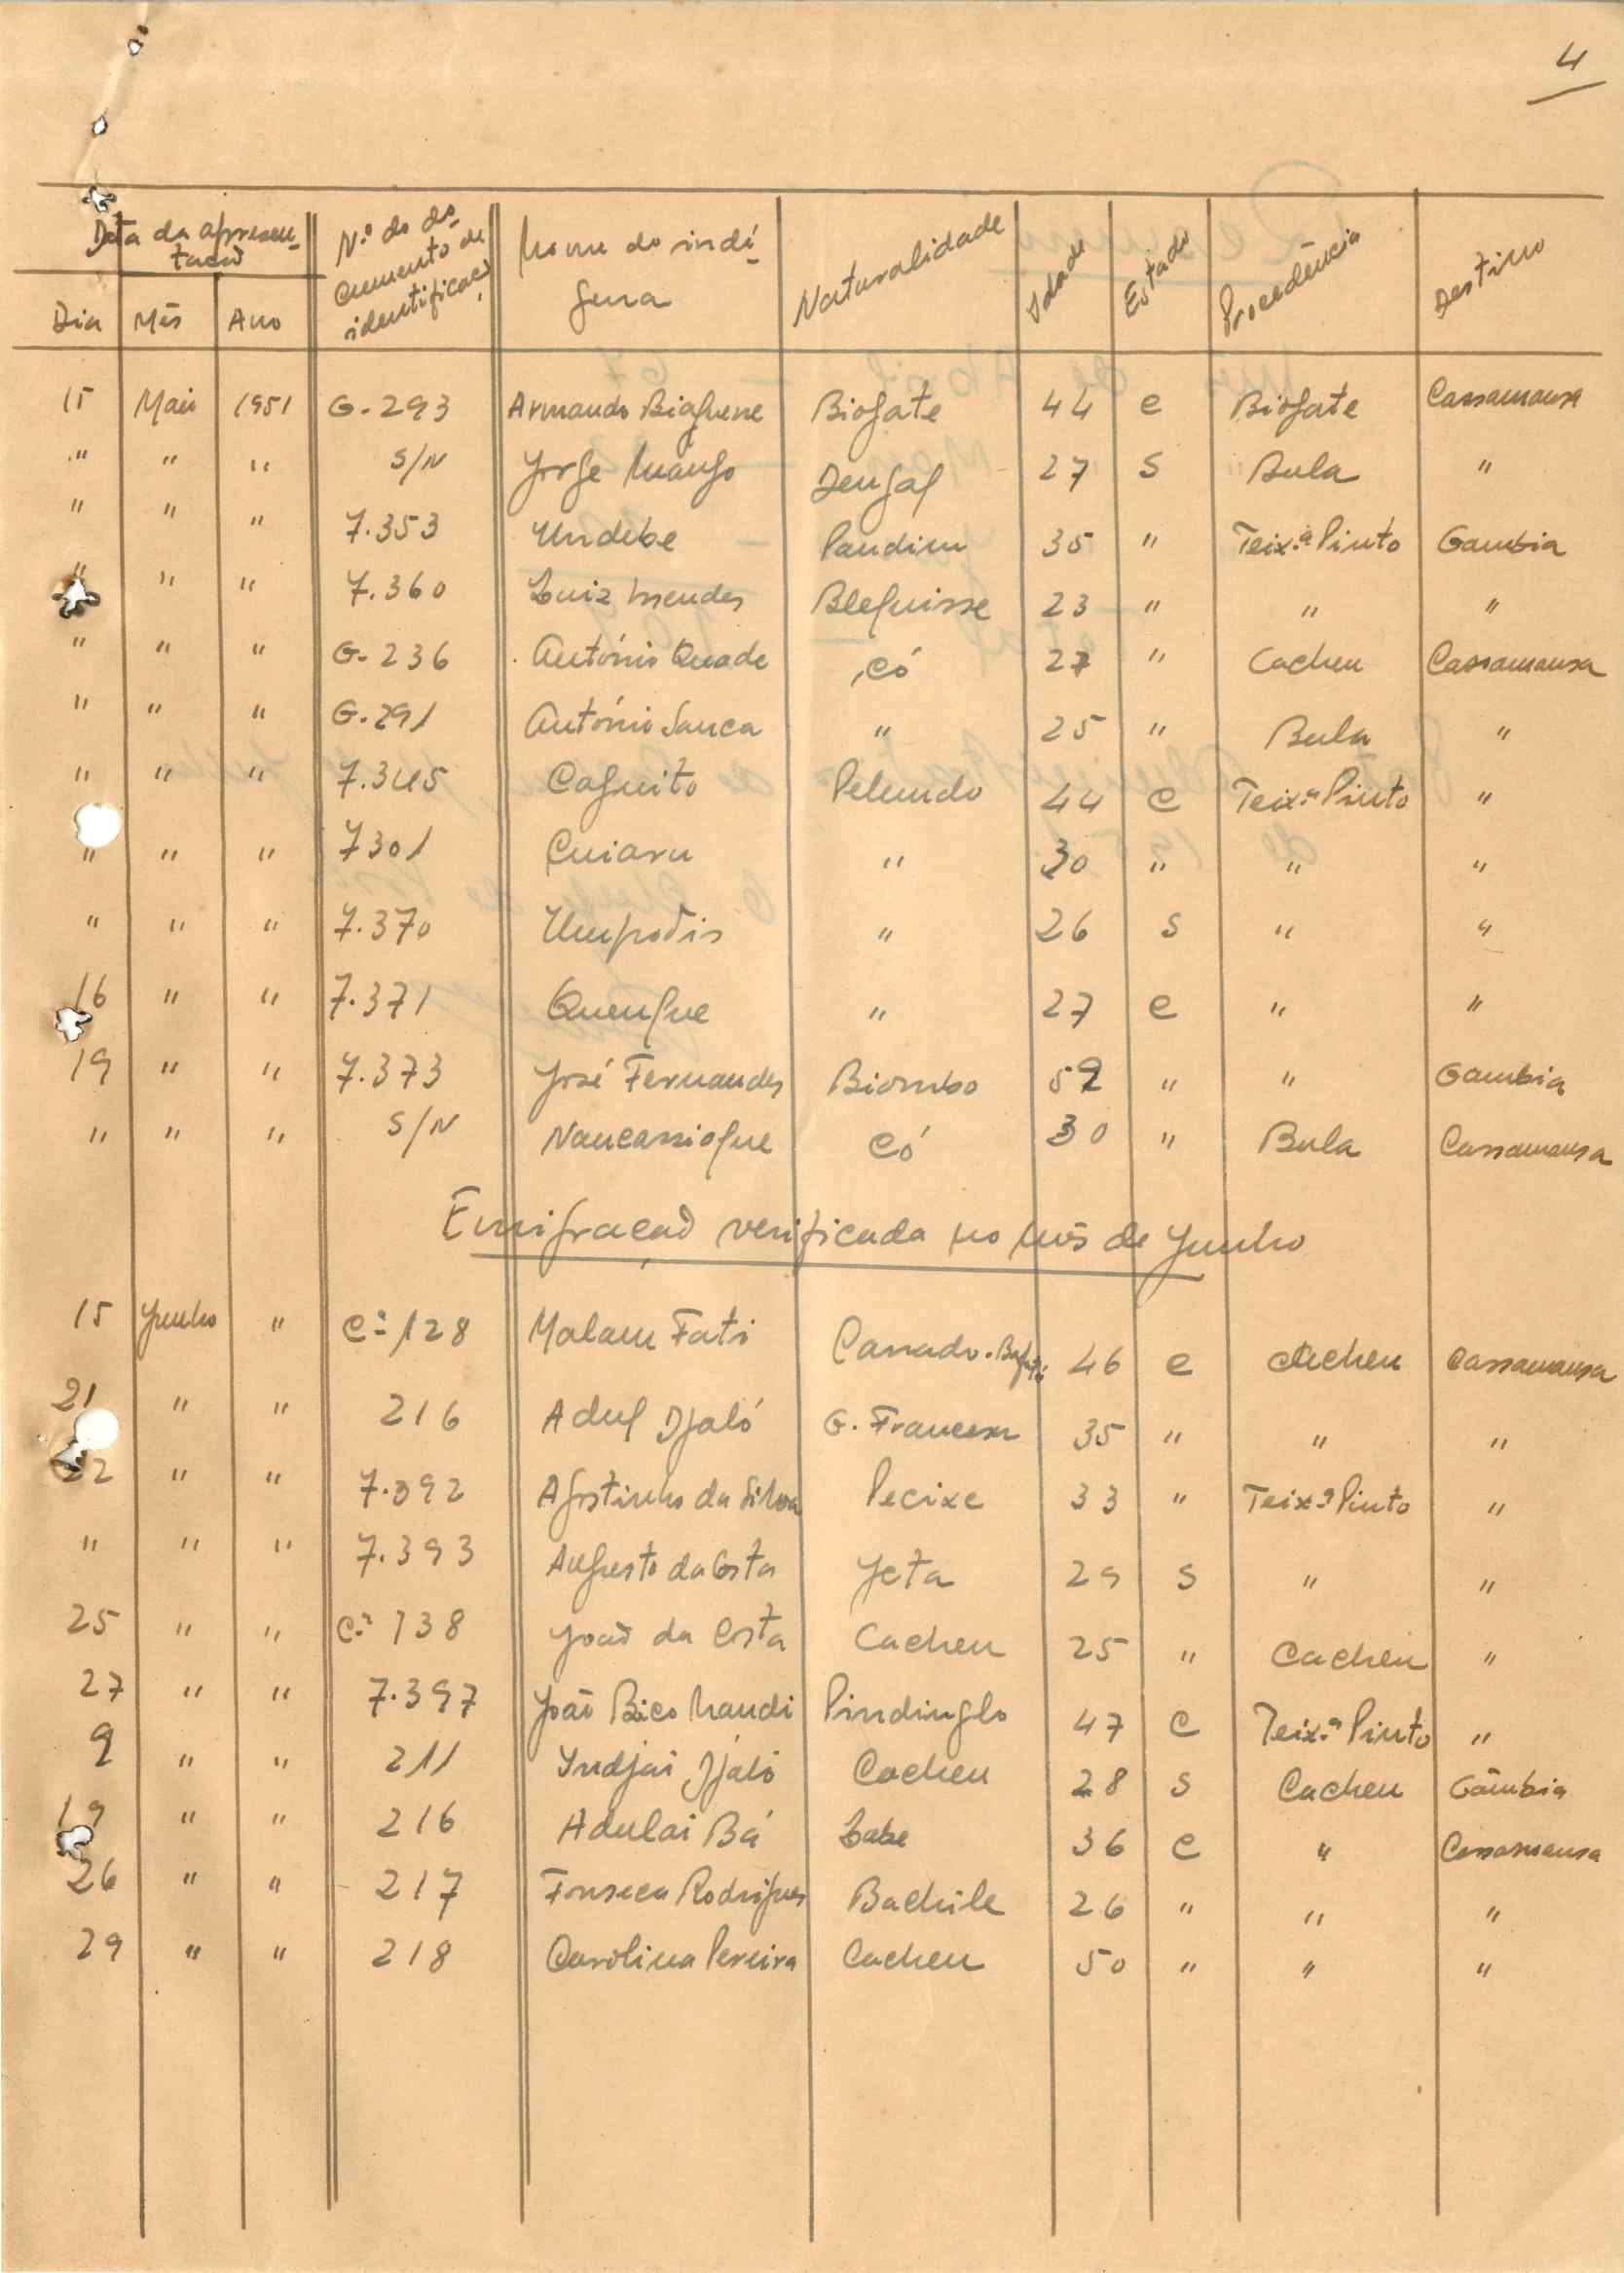 4
Data da apresen-
tação
Dia Mês Ano
N.º do do-
cumento de
identificaçã
Nome do indí-
gena
Naturalidade
Idade
Estado
Procedência
Destino
15 Maio 1951 G.293 Armando Biaguene Biogate 44 c Biogate Cassamansa
" " " S/N Jorge Mango Dengal 27 S Bula "
" " " 7.353 Undebe Pandim 35 " Teix.ª Pinto Gambia
" " " 7.360 Luiz Mendes Blequisse 23 " " "
" " " G-236 António Quade Có 27 " Cacheu Cassamansa
" " " G.291 António Sanca " 25 " Bula "
" " " 7.345 Caguito Pelundo 44 c Teix.ª Pinto "
" " " 7301 Cuiaru " 30 " " "
" " " 7.370 Umpodis " 26 s " "
16 " " 7.371 Quengue " 27 c " "
19 " " 7.373 José Fernandes Biombo 52 " " Gambia
" " " S/N Nancassiogue Có 30 " Bula Cassamansa
Emigração verificada no mês de Junho
15 Junho " C.ª 128 Malam Fati Canado. 46 c Cacheu Cassamansa
21 " " 216 Adul Djaló G. Francesa 35 " " "
22 " " 7.392 Agostinho da Silva Pecixe 33 " Teix.ª Pinto "
" " " 7.393 Augusto da Costa Jeta 29 s " "
25 " " C.ª 138 João da Costa Cacheu 25 " Cacheu "
27 " " 7.397 João Bico Nandi Pindinglo 47 c Teix.ª Pinto "
9 " " 211 Indjai Djaló Cacheu 28 s Cacheu Gâmbia
19 " " 216 Adulai Bá Labe 36 c " Cassamansa
26 " " 217 Fonseca Rodrigues Bachile 26 " " "
29 " " 218 Carolina Pereira Cacheu 50 " " "